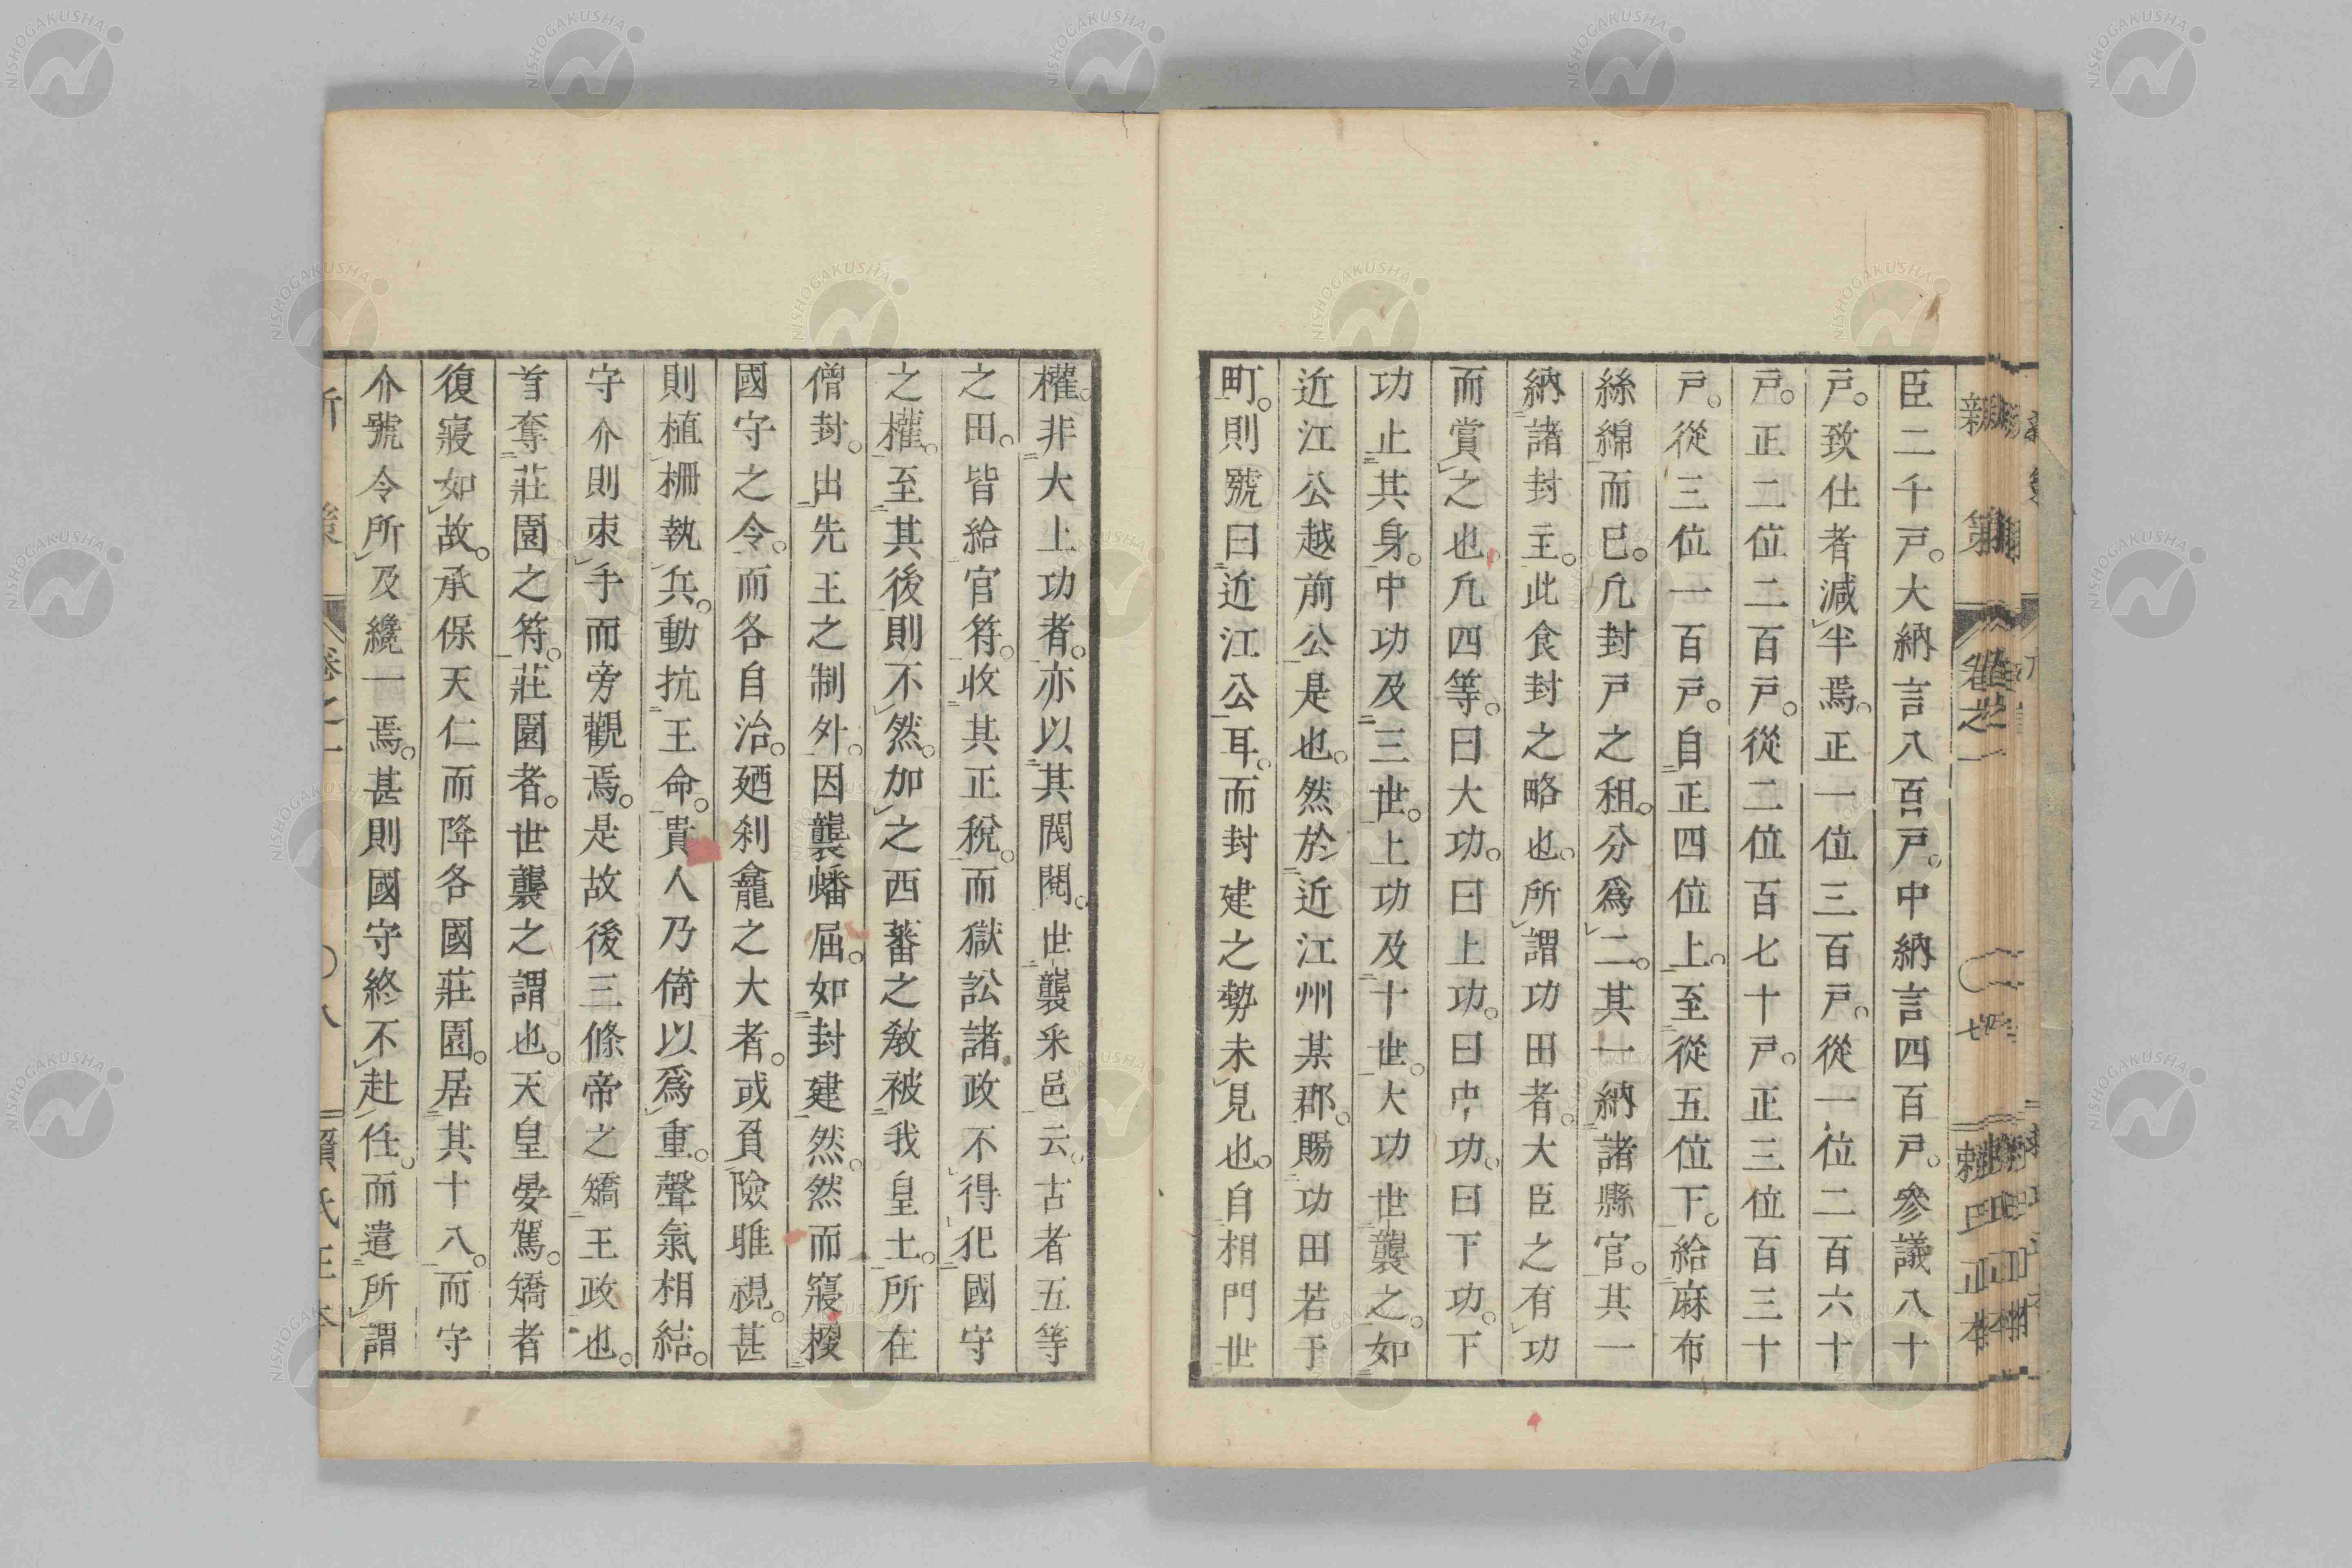 臣二千戸。大納言八百戸。中納言四百戸。參議八十
戸。致仕者減半焉。正一位三百戸。從一位二百六十
戸。正二位二百戸。從二位百七十戸。正三位百三十
戸。從三位一百戸。自正四位上。至從五位下。給麻布
絲綿而已。凡封戸之租。分爲二。其一納諸縣官。其一
納諸封主。此食封之略也。所謂功田者。大臣之有功
而賞之也。凡四等。曰大功。曰上功。曰中功。曰下功。下
功止其身。中功及三世。上功及十世。大功世襲之。如
近江公越前公是也。然於近江州某郡。賜功田若干
町。則號曰近江公耳。而封建之勢未見也。自相門世
權。非大上功者。亦以其閥閱。世襲采邑云。古者五等
之田。皆給官符。收其正稅。而獄訟諸政不得犯國守
之權。至其後則不然。加之西蕃之敎被我皇土。所在
僧封。出先王之制外。因襲蟠屈。如封建然。然而寢稷
國守之令。而各自治。廼刹龕之大者。或負險雎視。甚
則植柵執兵。動抗王命。貴人乃倚以爲重。聲氣相結。
守介則束手而旁觀焉。是故後三條帝之矯王政也。
首奪莊園之符。莊園者。世襲之謂也。天皇晏駕。矯者
復寢如故。承保天仁而降各國莊園。居其十八。而守
介號令所及纔一焉。甚則國守終不赴任。而遣所謂
新策 卷之一 〇八 賴氏正本